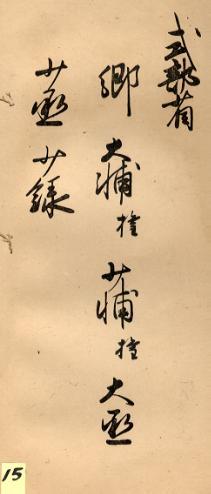 式部省
卿 大輔権 少輔権 大丞
少丞 少録
15